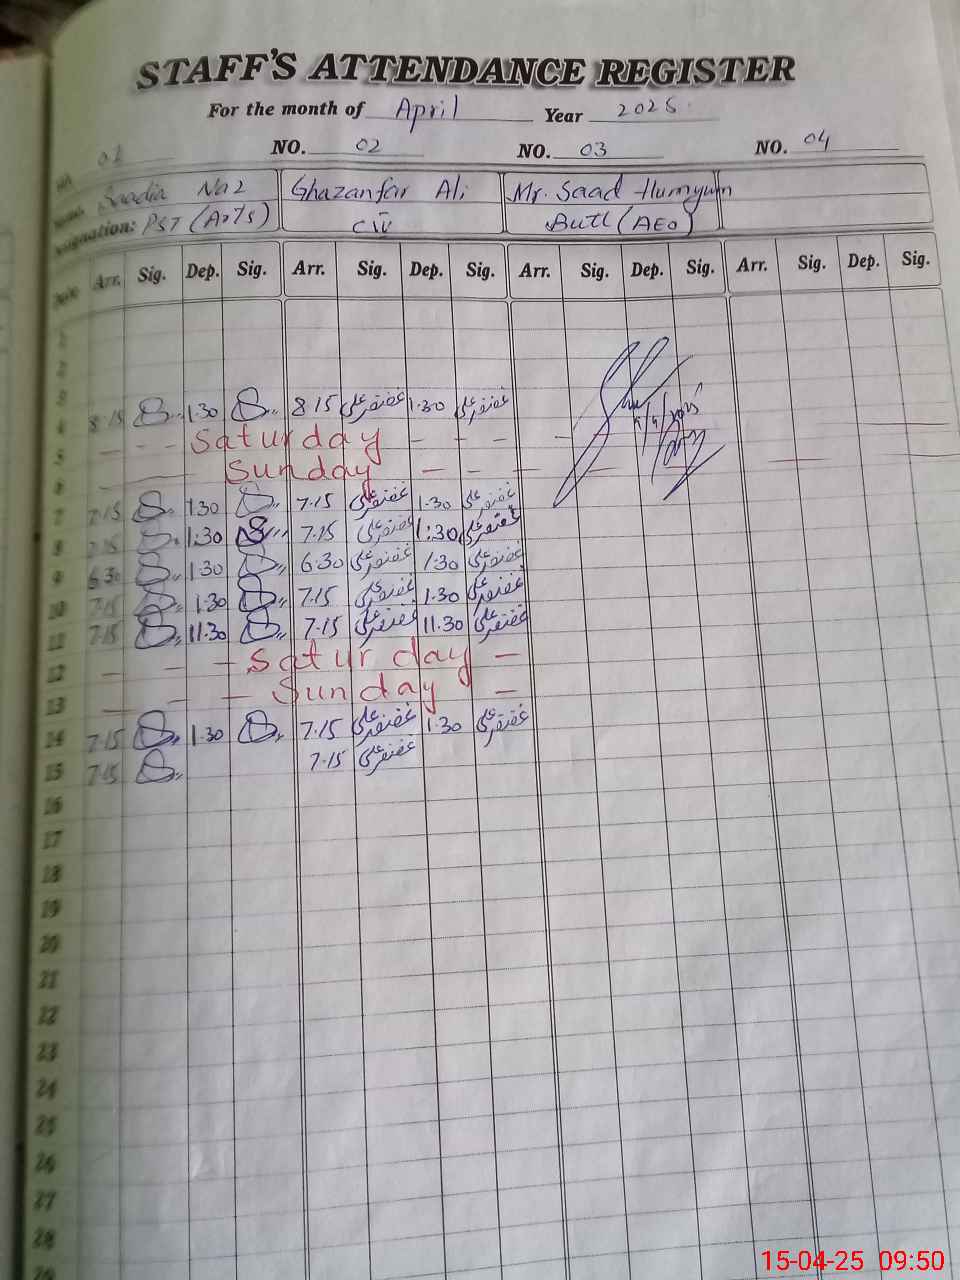 STAFF'S ATTENDANCE REGISTER
For the month of April Year 2025
01 NO. 02 NO. 03 NO. 04
Saadia Naz Ghazanfar Ali Mr. Saad Humyun
Designation: PST (Arts) CIV Butt (AEO)
Date Arr. Sig. Dep. Sig. Arr. Sig. Dep. Sig. Arr. Sig. Dep. Sig. Arr. Sig. Dep. Sig.
1
2
3
4 8.15 1.30 8.15 غضنفر علی 1.30 غضنفر علی
5 — — Saturday — — — —
6 — Sunday — — — —
7 7.15 1.30 7.15 غضنفر علی 1.30 غضنفر علی
8 7.15 1:30 7.15 غضنفر علی 1:30 غضنفر علی
9 6.30 1.30 6.30 غضنفر علی 1.30 غضنفر علی
10 7.15 1.30 7.15 غضنفر علی 1.30 غضنفر علی
11 7.15 11.30 7.15 غضنفر علی 11.30 غضنفر علی
12 — — — Saturday —
13 — — — Sunday —
14 7.15 1.30 7.15 غضنفر علی 1.30 غضنفر علی
15 7.15 7.15 غضنفر علی
16
17
18
19
20
21
22
23
24
25
26
27
28
29
15-04-25 09:50